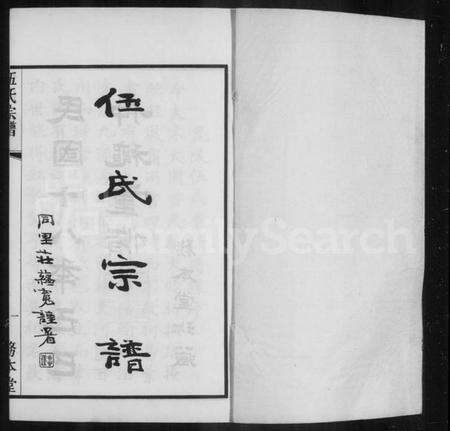 伍氏宗譜
同里莊蘊寬謹署
伍氏宗譜
一
務本堂
FamilySearch